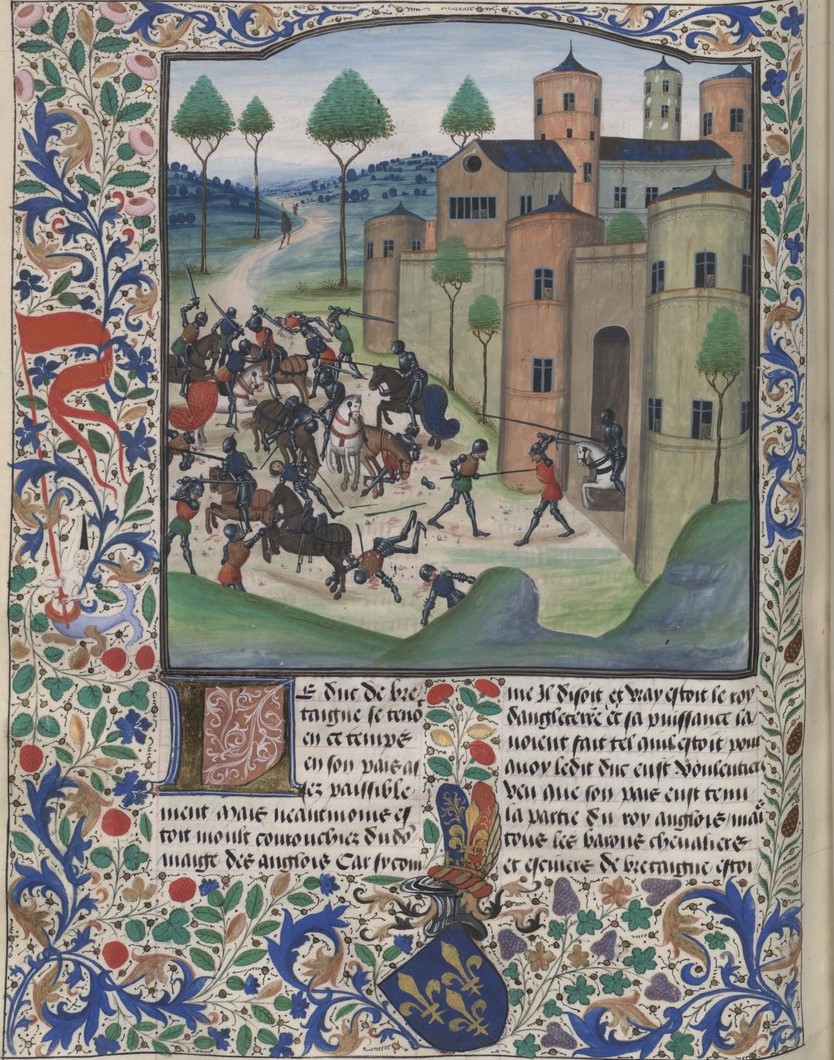 Le duc de bre
taigne se tenoit
en ce temps
en son pais as
sez paisible
ment Mais neantmoins es
toit moult courouchiez du do
maige des anglois Car sy com
me Il disoit et vray estoit le roy
dangleterre et sa puissance la
uoient fait tel quil estoit pour
quoy ledit duc eust voulentiers
veu que son pais eust tenu
la partie du roy anglois mais
tous les barons cheualiers
et escuiers de bretaigne estoi